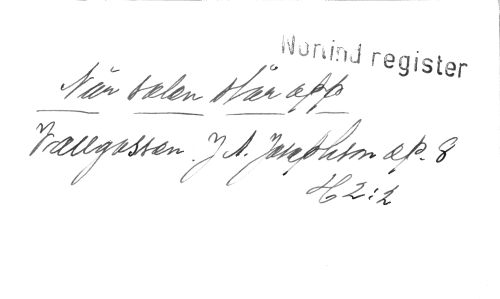 Nonind register
När solen står opp
Vallgossen. J A. Josephson op. 8
H 2:2